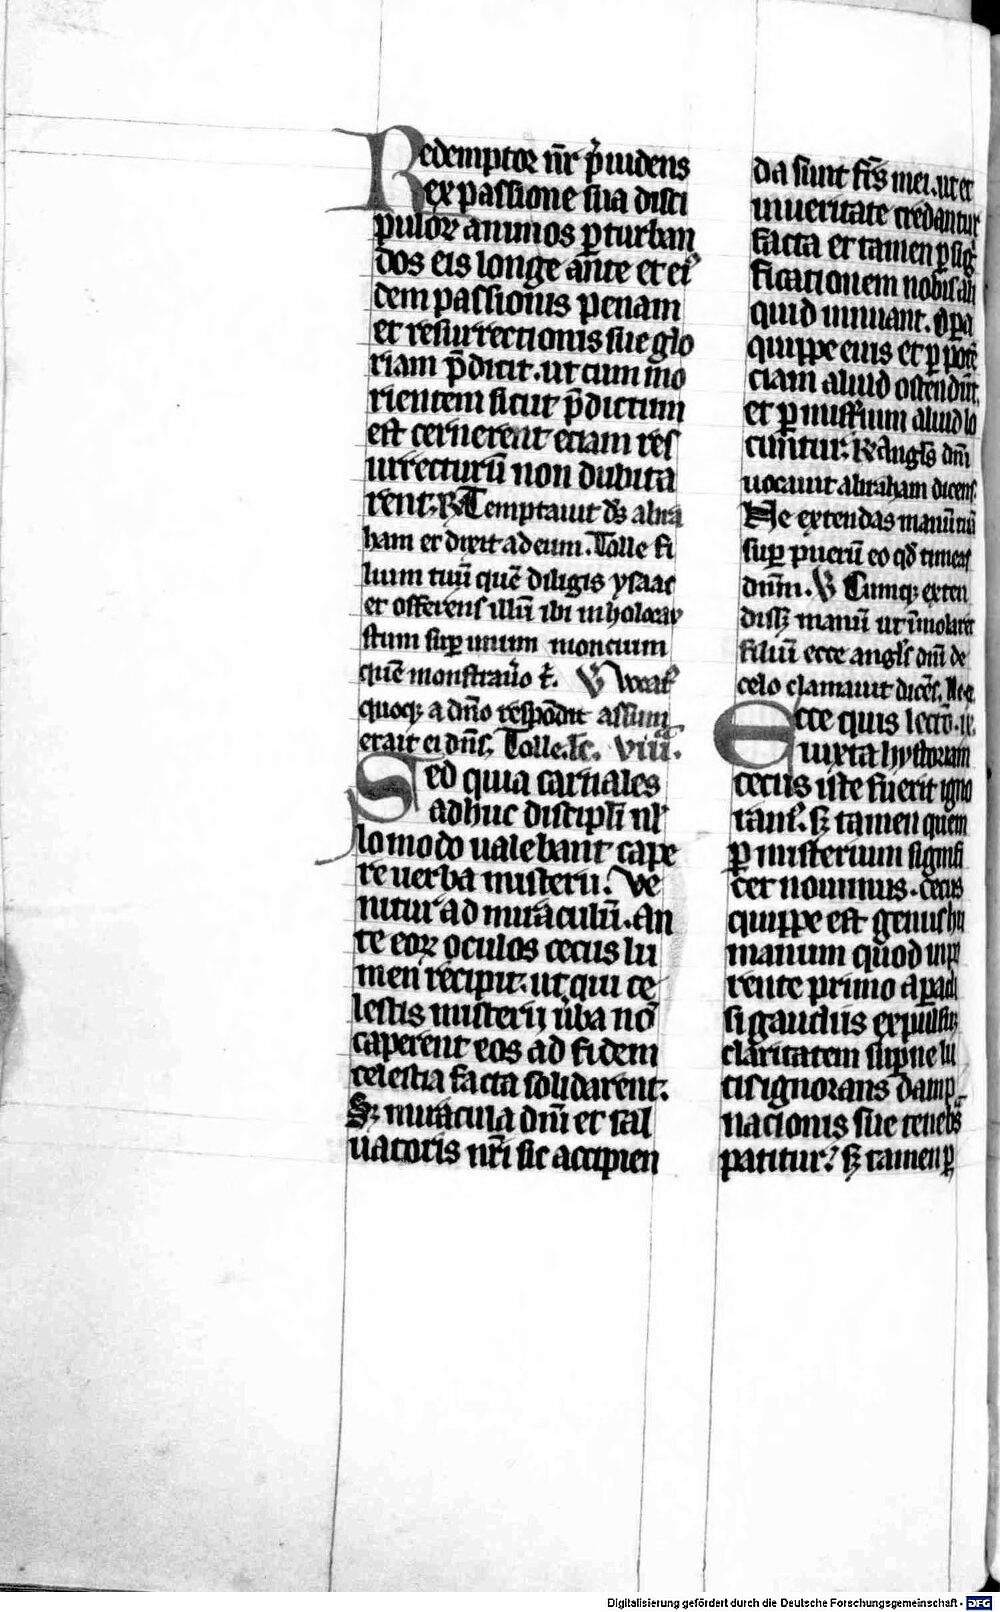 Redemptor nr̄ p̄uidens
ex passione sua disci
puloꝝ animos ꝑturban
dos eis longe ante et eiꝰ
dem passionis penam
et resurrectionis sue glo
riam p̄dicit. ut cum mo
rientem sicut p̄dictum
est cernerent eciam res
urrecturū non dubita
rent. ℟ Temptauit ds̄ abra
ham et dixit ad eum. Tolle fi
lium tuū quē diligis ysaac
et offerens illū ibi in holocau
stum suꝑ unum moncium
quē monstrau̾o t̄. ℣ Vocatꝰ
quoqꝫ a dn̄o respōdit assum
et ait ei dn̄s. Tolle. lc̄. viii.
Sed quia carnales
adhuc discipli nl̄
lo modo ualebant cape
re uerba misterii. Ve
nitur ad miraculū. An
te eoꝝ oculos cecus lu
men recipit. ut qui ce
lestis misterij u̾ba nō
caperent eos ad fidem
celestia facta solidarent.
Sꝫ miracula dn̄i et sal
uatoris nr̄i sic accipien
da sunt frs̄ mei. ut et
in ueritate credantur
facta et tamen ꝑ sig
ficationem nobis ali
quid innuant. Opa
quippe eius et ꝑ potē
ciam aliud ostendūt.
et ꝑ misterium aliud lo
cuntur. ℟ Angls̄ dn̄i
uocauit abraham dicens.
Ne extendas manū tuā
suꝑ puerū eo qd̄ timeas
dn̄m. ℣ Cumqꝫ exten
dissꝫ manū ut īmolaret
filiū ecce angls̄ dn̄i de
celo clamauit dicēs. Ne e
Ecce quis lectō. ix.
iuxta hystoriam
cecus iste fuerit igno
ramꝰ. sꝫ tamen quem
ꝑ misterium signifi
cet nouimus. cecus
quippe est genus hu
manum quod in pa
rente primo a paradi
si gaudiis expulsū
claritatem suꝑne lu
cis ignorans damp
nacionis sue tenebs̄
patitur. sꝫ tamen ꝑ
Digitalisierung gefördert durch die Deutsche Forschungsgemeinschaft - DFG